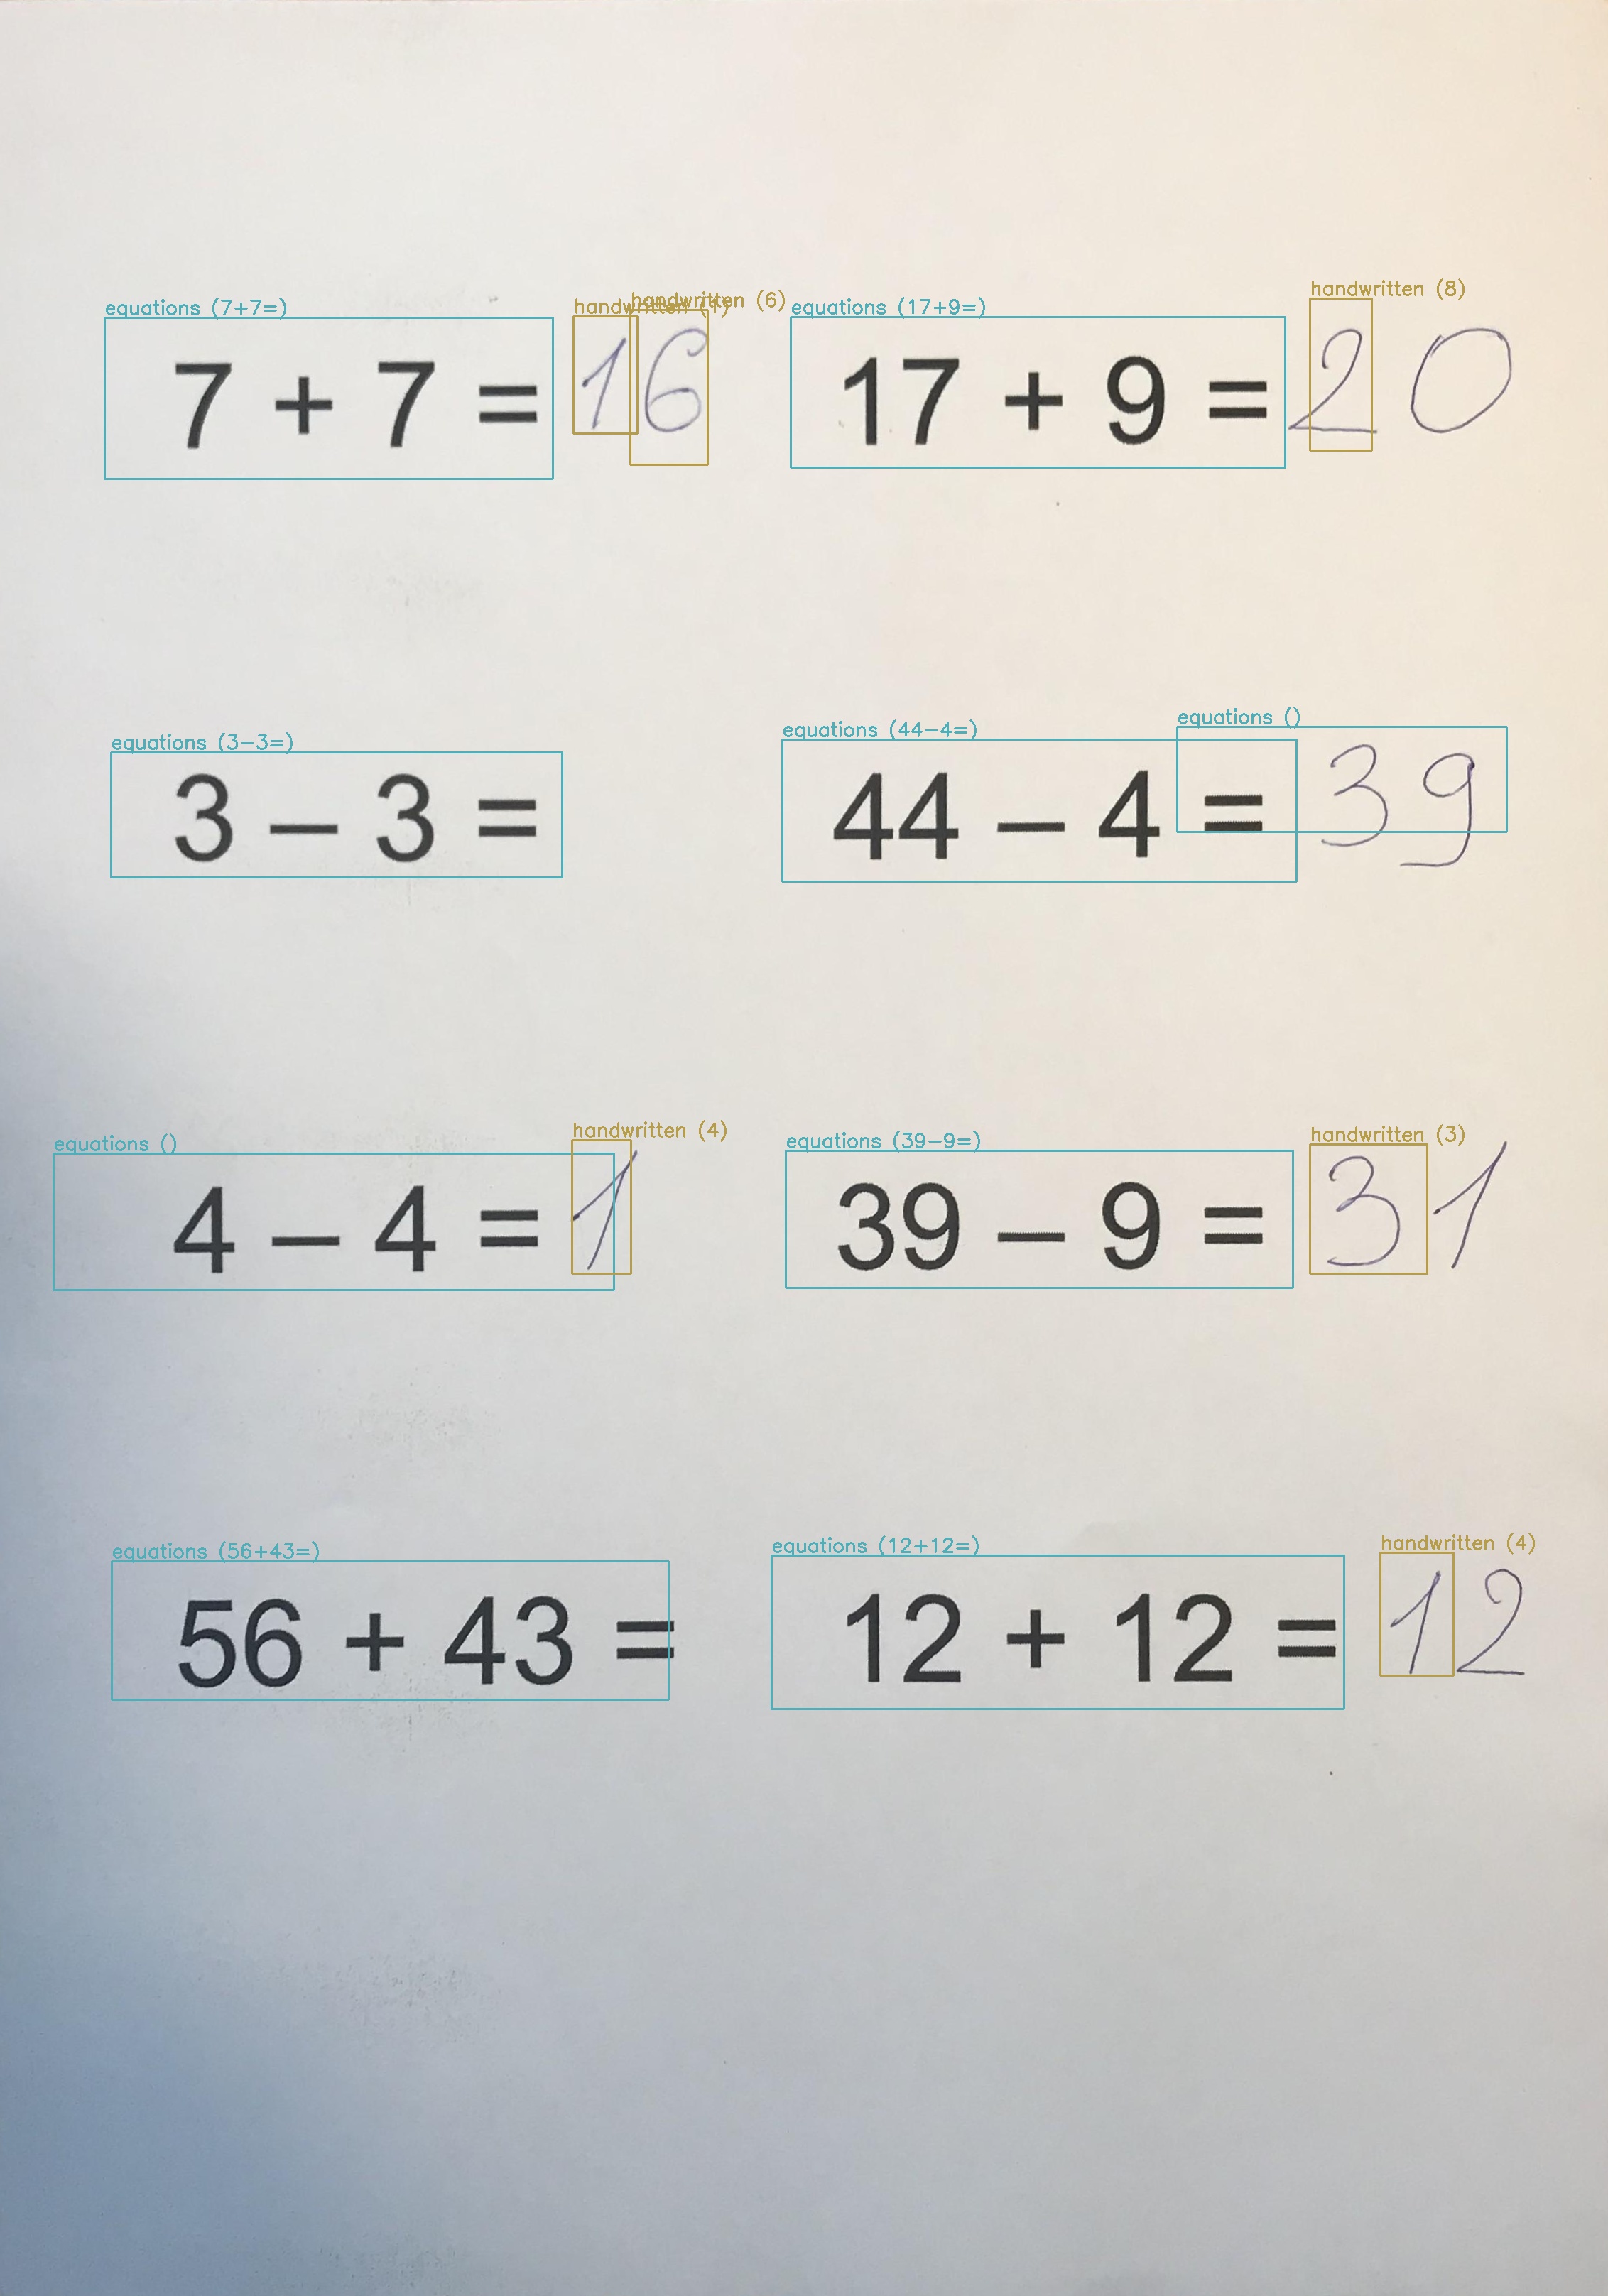 equations (7+7=) handwritten (1) handwritten (6) equations (17+9=) handwritten (8)
7 + 7 = 16 17 + 9 = 20
equations (3-3=) equations (44-4=) equations ()
3 – 3 = 44 – 4 = 39
equations () handwritten (4) equations (39-9=) handwritten (3)
4 – 4 = 1 39 – 9 = 31
equations (56+43=) equations (12+12=) handwritten (4)
56 + 43 = 12 + 12 = 12